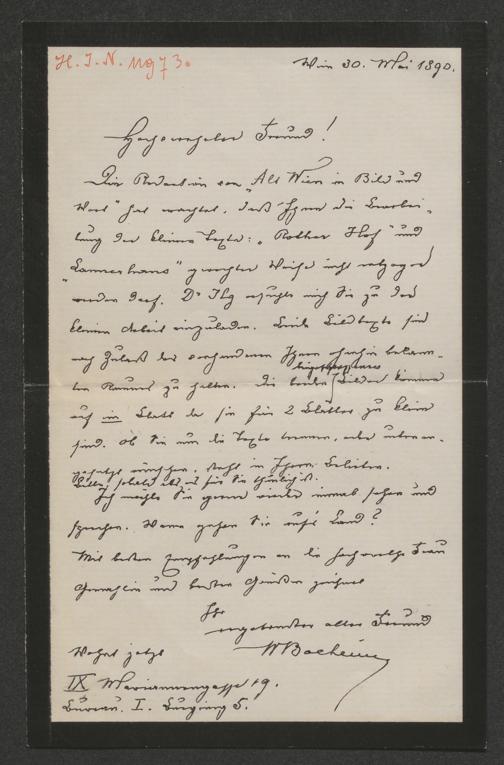 H. I. N. 11973.
Wien 30. Mai 1890.
Hochverehrter Freund!
Die Redaction von „Alt Wien in Bild und
Wort" hat erachtet, daß Ihnen die Bearbei-
tung der kleinen Texte: „Rother Hof" und
„Lannerhaus" gerechter Weise nicht entzogen
werden darf. Dr Ilg ersucht mich Sie zu der
kleinen Arbeit einzuladen. Beide Bildtexte sind
nach Zulaß des vorhandenen Ihnen ohnehin bekann-
ten Raumes zu halten. Die beiden Bilder kommen
auf ein Blatt da sie für 2 Blätter zu klein
sind. Ob Sie nun die Texte trennen, oder unterein-
gesetzt wünschen, steht in Ihrem Belieben.
Bitte sobald als es für Sie thunlich ist.
Ich möchte Sie gerne wieder einmal sehen und
sprechen. Wann gehen Sie auf's Land?
Mit besten Empfehlungen an die hochverehrte Frau
Gemahlin und besten Grüßen zeichnet
Ihr
ergebenster alter Freund
WBoeheim
Wohnt jetzt
IX Mariannengasse 19.
Bureau. I. Burgring 5.